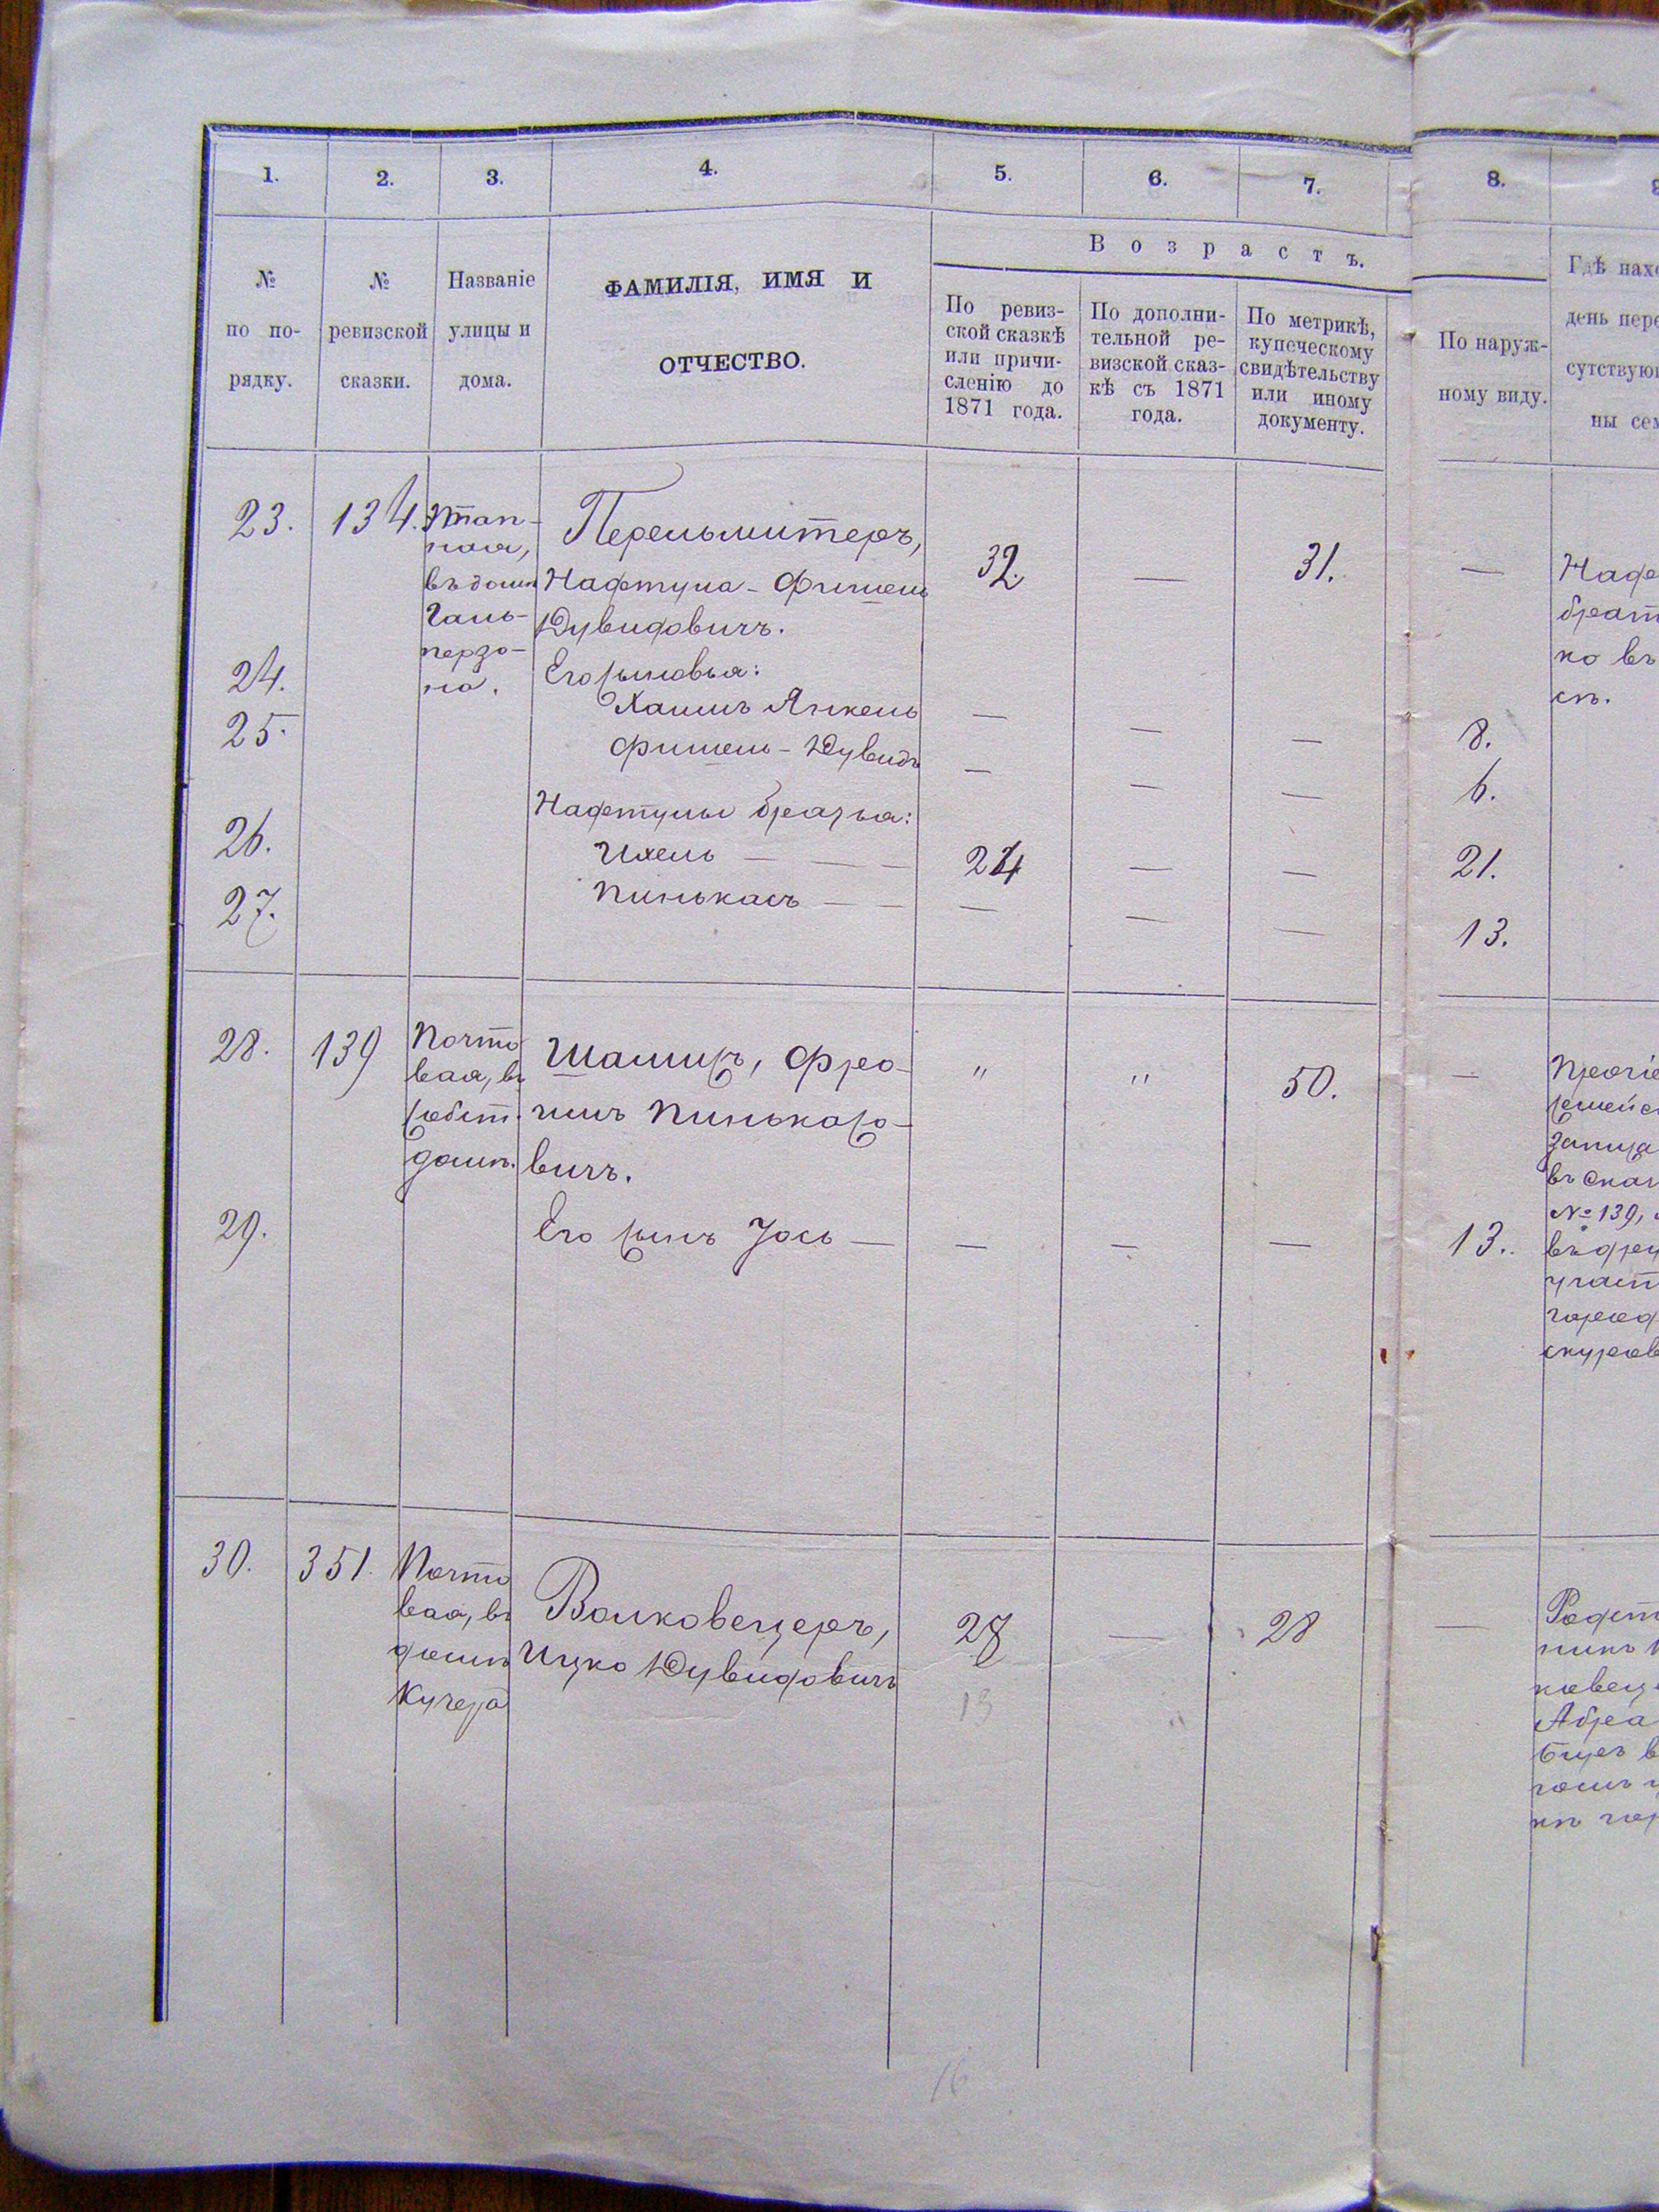 1. 2. 3. 4. 5. 6. 7. 8.
№ по по-рядку.
№ ревизской сказки.
Названіе улицы и дома.
ФАМИЛІЯ, ИМЯ И
ОТЧЕСТВО.
Возрастъ.
По ревиз-
ской сказкѣ
или причи-
сленію до
1871 года.
По дополни-
тельной ре-
визской сказ-
кѣ съ 1871
года.
По метрикѣ,
купеческому
свидѣтельству
или иному
документу.
По наруж-
ному виду.
Гдѣ нахо
день пере
сутствую
ны сем
23. 134.
Этап-
ная,
въ домѣ
Галь-
перзо-
на.
Перельмитеръ,
Нафтула-Фишель
Дувидовичъ.
32. — 31. —
Нафт
брат
ко въ
24. Его сыновья:
Хаимъ Янкель — — — 8.
25. Фишель-Дувидъ — — — 6.
Нафтулы братья:
26. Ихель — — — 24 — — 21.
27. Пинькасъ — — — — — 13.
28. 139
Почто
вая, въ
собст.
домѣ.
Шамисъ, Фро-
имъ Пинькасо-
вичъ.
" " 50. —
Прочіе
семейс
записа
въ сказ
№ 139,
29. Его сынъ Іось — — — — 13.
участ
город
скуров
30. 351.
Почто
вая, въ
домѣ
Кучера
Волковецеръ,
Ицко Дувидовичъ
28 — 28 —
13
Родст
ковец
Абра
16